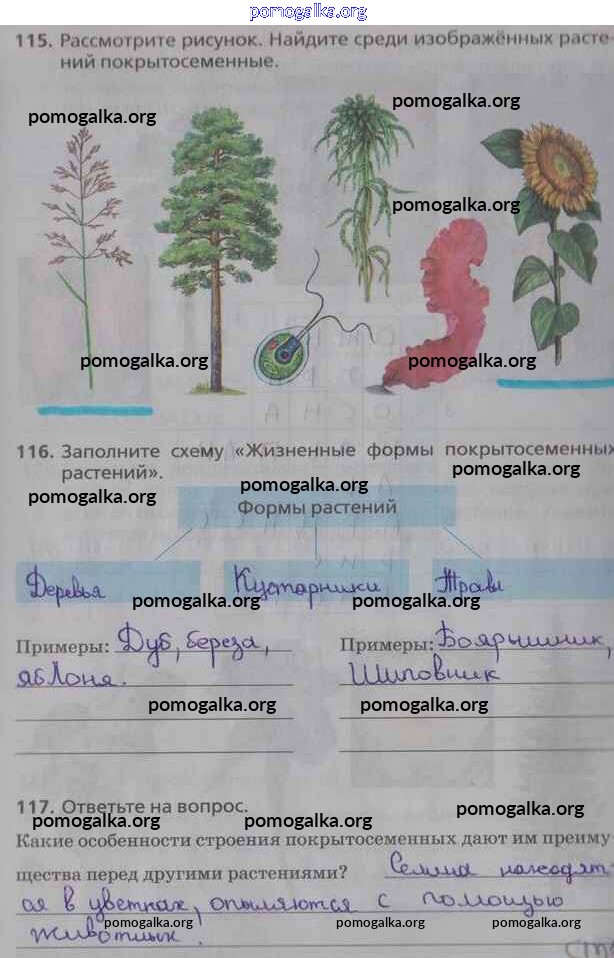 pomogalka.org
115. Рассмотрите рисунок. Найдите среди изображённых расте-
ний покрытосеменные.
pomogalka.org
pomogalka.org
pomogalka.org
pomogalka.org
pomogalka.org
116. Заполните схему «Жизненные формы покрытосеменных
растений».
pomogalka.org
pomogalka.org
pomogalka.org
Формы растений
Деревья Кустарники Травы
pomogalka.org pomogalka.org
Примеры: Дуб, береза,
яблоня.
Примеры: Боярышник,
Шиповник
pomogalka.org pomogalka.org
117. Ответьте на вопрос.
pomogalka.org pomogalka.org pomogalka.org
Какие особенности строения покрытосеменных дают им преиму-
щества перед другими растениями? Семена находят-
ся в цветках, опыляются с помощью
животных.
pomogalka.org pomogalka.org pomogalka.org